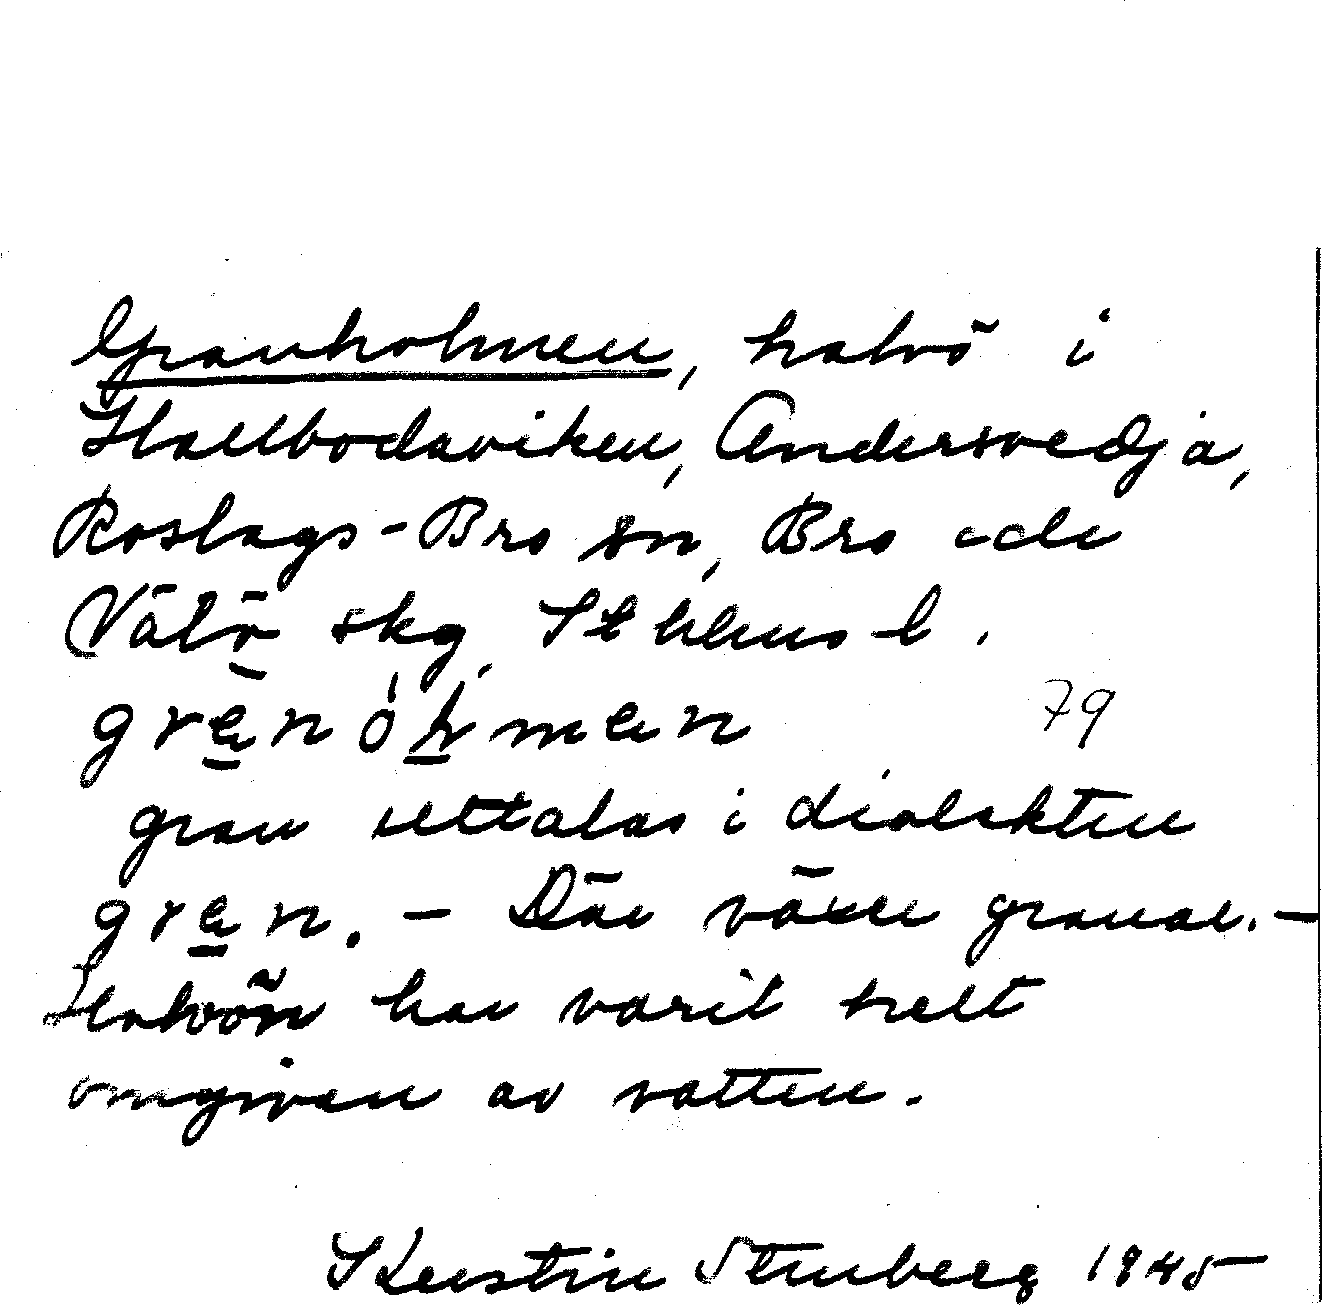 Granholmen, halvö i
Hallbodaviken, Andersvedja,
Roslags-Bro sn, Bro och
Vätö skg, Sthlms l.
79
gran uttalas i dialekten
gran. – Där växer granar. –
Halvön har varit helt
omgiven av vatten.
Kerstin Stenberg 1945